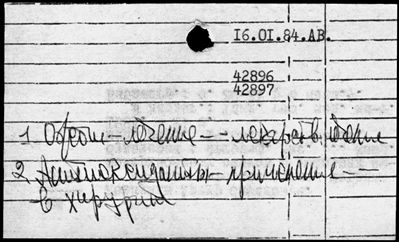 16.01.84.АВ.
42896
42897
1 Ожоги - лечение - - лекарств.
2. Антиоксиданты - применение - -
в хирургии